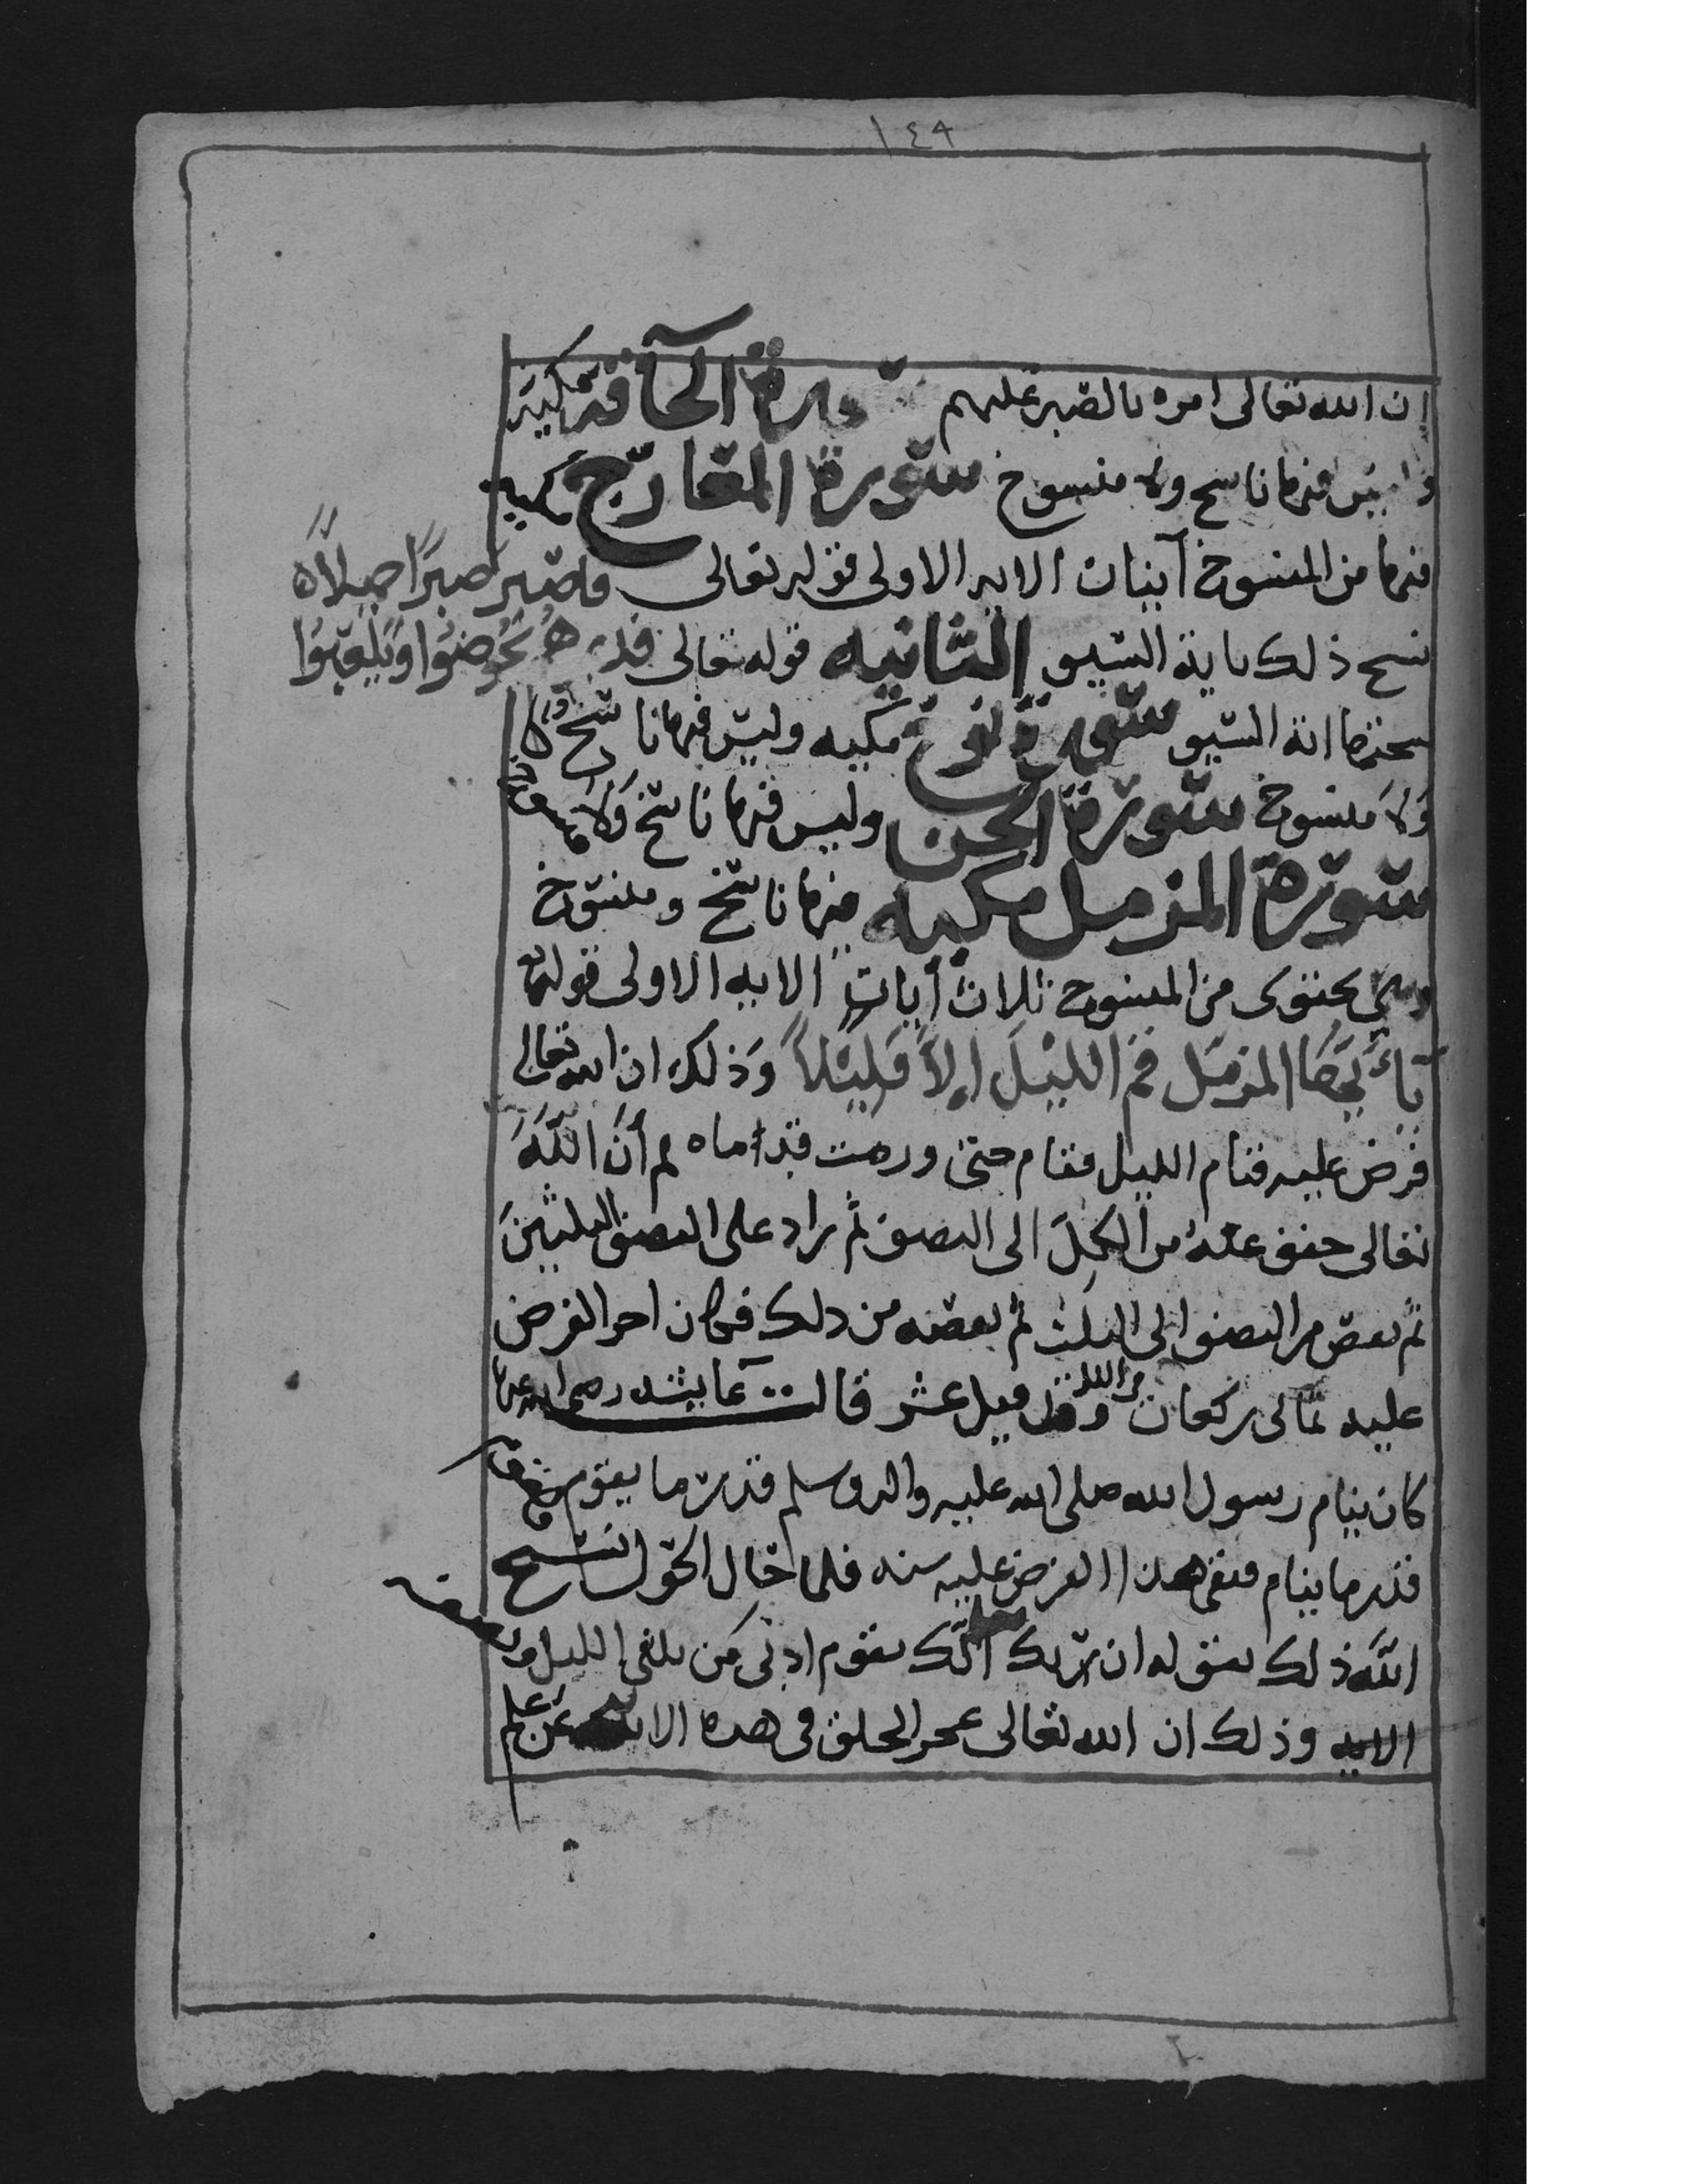 ١٤٩
ان الله تعالى امره بالصبر عليهم سورة الحآقة مكية
وليس فيها ناسخ ولا منسوخ سورة المعارج مكيه
فيها من المنسوخ آيتان الايه الاولى قوله تعالى فاصبر صبرًا جميلاً
نسخ ذلك باية السيف الثانيه قوله تعالى فذرهم يخوضوا ويلعبوا
نسختها اية السيف سورة نوح مكيه وليس فيها ناسخ
ولا منسوخ سورة الجن وليس فيها ناسخ ولا منسوخ
سورة المزمل مكيه فيها ناسخ ومنسوخ
وهي يحتوى من المنسوخ ثلاث أيات الايه الاولى قوله تعالى
يٰأيها المزمل قم الليل إلا قليلاً وذلك ان الله تعالى
فرض عليه قيام الليل فقام حتى ورمت قدماه ثم أن الله
تعالى خفف عنه من الكل الى النصف ثم زاد على النصف الثلثين
ثم نقص من النصف الى الثلث ثم نقصه من ذلك فكان اخر الفرض
عليه ثمانى ركعات من الليل وقد قيل عشر قالت عآيشه رضي الله عنها
كان ينام رسول الله صلى الله عليه واله وسلم قدر ما يقوم ويقوم
قدر ما ينام فبقى هذا الفرض عليه سنه فلما حال الحول نسخ
الله ذلك بقوله ان ربك يعلم انك تقوم ادنى من ثلثى الليل ونصفه
الايه وذلك ان الله تعالى عجز الخلق في هذه الايه عن علم